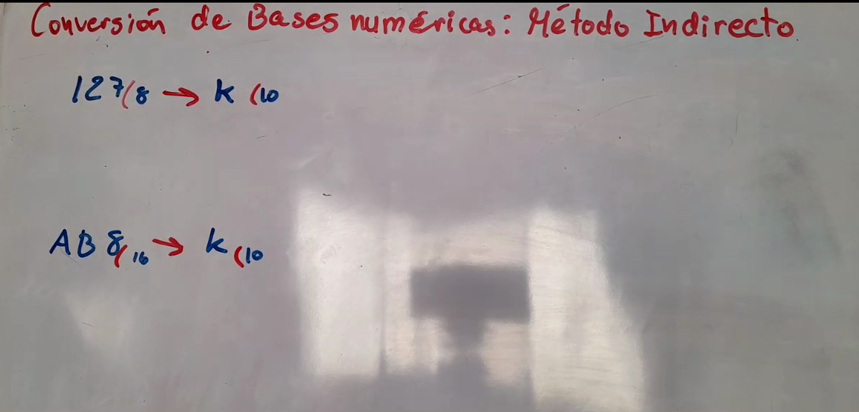 Conversión de Bases numéricas: Método Indirecto
127(8 → k (10
AB8(16 → k(10